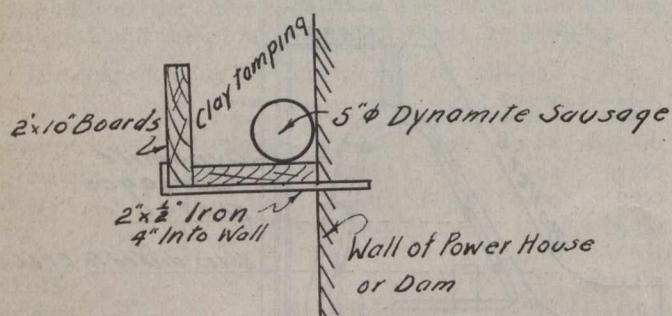 Clay tamping
2"x10" Boards
5"ϕ Dynamite Sausage
2"x½" Iron
4" Into Wall
Wall of Power House
or Dam